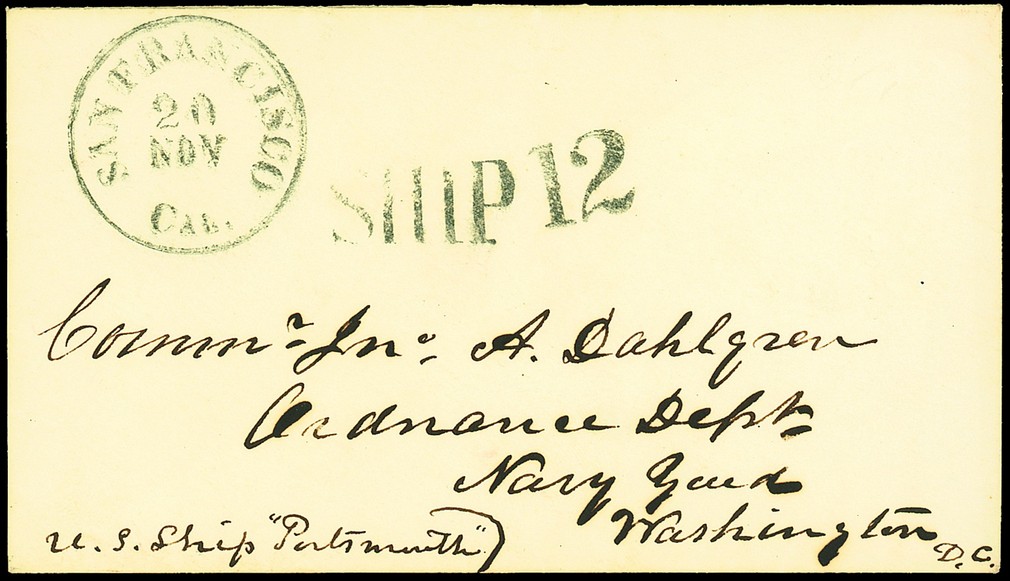 SAN FRANCISCO
20
NOV
CAL.
SHIP 12
Commr Jno. A. Dahlgren
Ordnance Dept
Navy Yard
Washington
D.C.
U.S. Ship "Portsmouth")